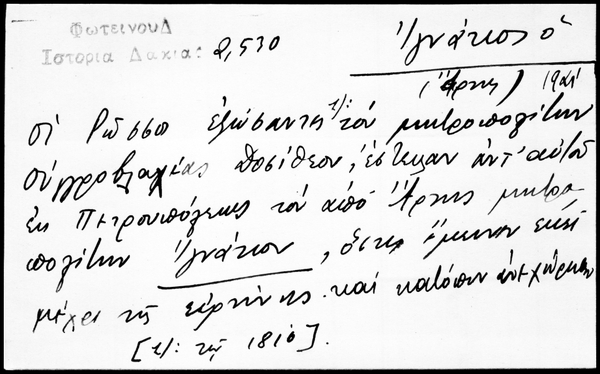 ΦωτεινουΔ
Ιστορια Δακιας 2,530
Ἰγνάτιος ὁ
(Ἄρτης) 1921
οἱ Ρῶσσοι ἐξώσαντες τὸν μητροπολίτην
οὐγγροβλαχίας Δοσίθεον, ἔστειλαν ἀντ' αὐτοῦ
ἐκ Πετρουπόλεως τὸν ἀπὸ Ἄρτης μητρο
πολίτην Ἰγνάτιον, ὅστις ἔμεινεν ἐκεῖ
μέχρι τῆς εἰρήνης καὶ κατόπιν ἀνεχώρησεν
[τῆς 1810].